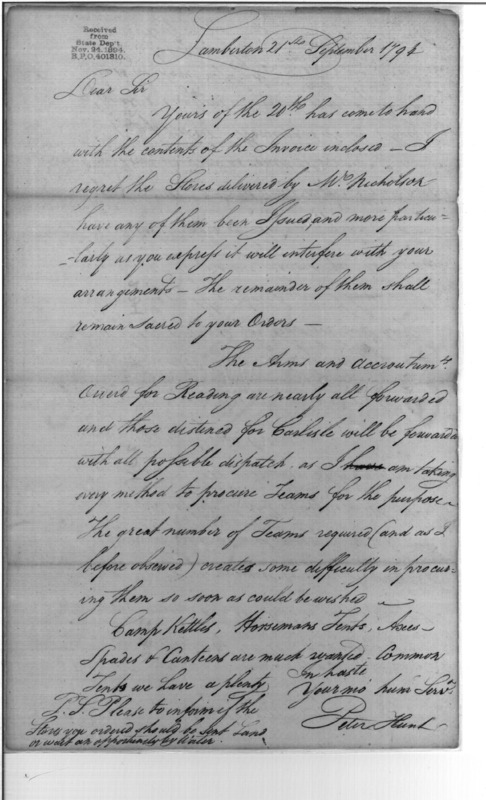 Received
from
State Dep't
Nov. 24, 1894.
R.P.O. 401310.
Lamberton 21st September 1794
Dear Sir
Yours of the 20th has come to hand
with the contents of the Invoice inclosed — I
regret the Stores delivered by Mr Nicholson
have any of them been Issued, and more particu-
-larly as you express it will interfere with your
arrangements — The remainder of them shall
remain sacred to your Orders —
The Arms and accroutumts
Orderd for Reading are nearly all forwarded
and those distined for Carlisle will be forwarded
with all possible dispatch. as I have am taking
every method to procure Teams for the purpose —
The great number of Teams required (and as I
before observed) creates some difficulty in procur-
ing them so soon as could be wished —
Camp Kettles, Horsemans Tents, Axes
Spades & Canteens are much wanted. Common
Tents we have a plenty In haste
Your mo hum Servt
P.S Please to inform if the Peter Hunt
Stores you ordered should be sent Land
or wait an opportunity by Water.